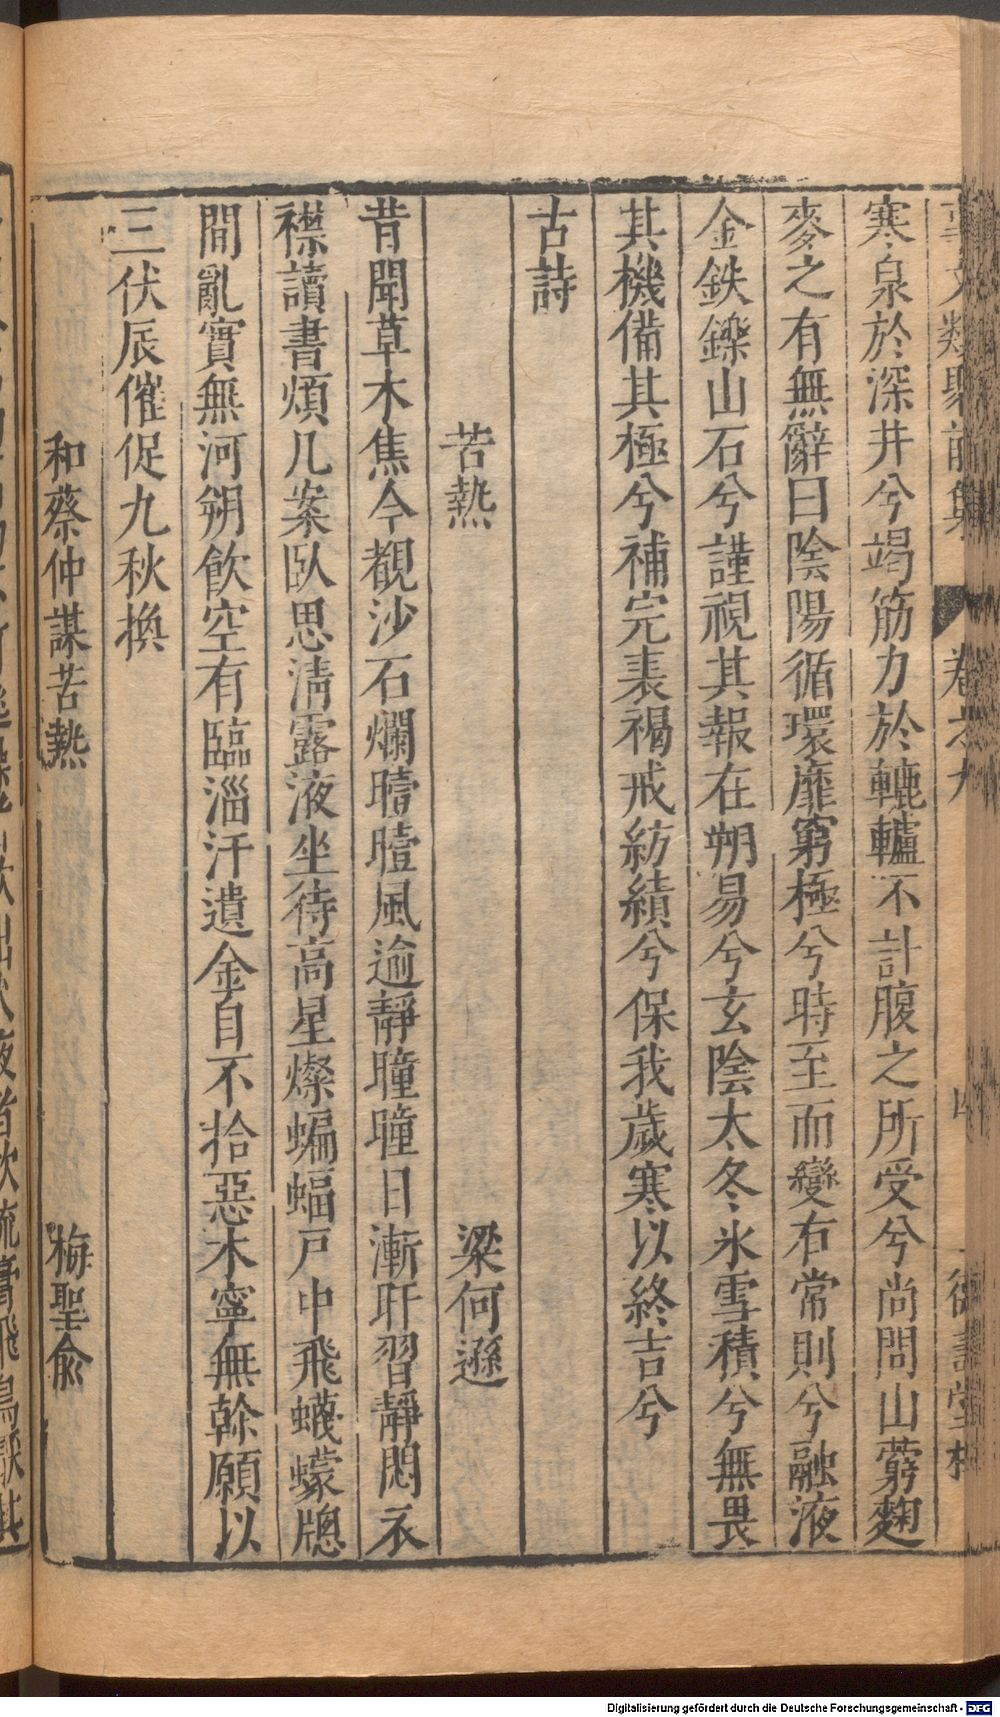 事文類聚前集 卷之九 四
寒泉於深井兮竭筋力於轆轤不計腹之所受兮尚問山藭麴
麥之有無辭曰陰陽循環靡窮極兮時至而變有常則兮融液
金鉄鑠山石兮謹視其報在朔易兮玄陰太冬氷雪積兮無畏
其機備其極兮補完裘褐戒紡績兮保我歲寒以終吉兮
古詩
苦熱 梁何遜
昔聞草木焦今覩沙石爛曀曀風逾靜曈曈日漸旰習靜悶衣
襟讀書煩几案臥思清露液坐待高星燦蝙蝠戶中飛蠛蠓牕
間亂實無河朔飲空有臨淄汗遺金自不拾惡木寧無榦願以
三伏辰催促九秋換
和蔡仲謀苦熱 梅聖俞
Digitalisierung gefördert durch die Deutsche Forschungsgemeinschaft - DFG